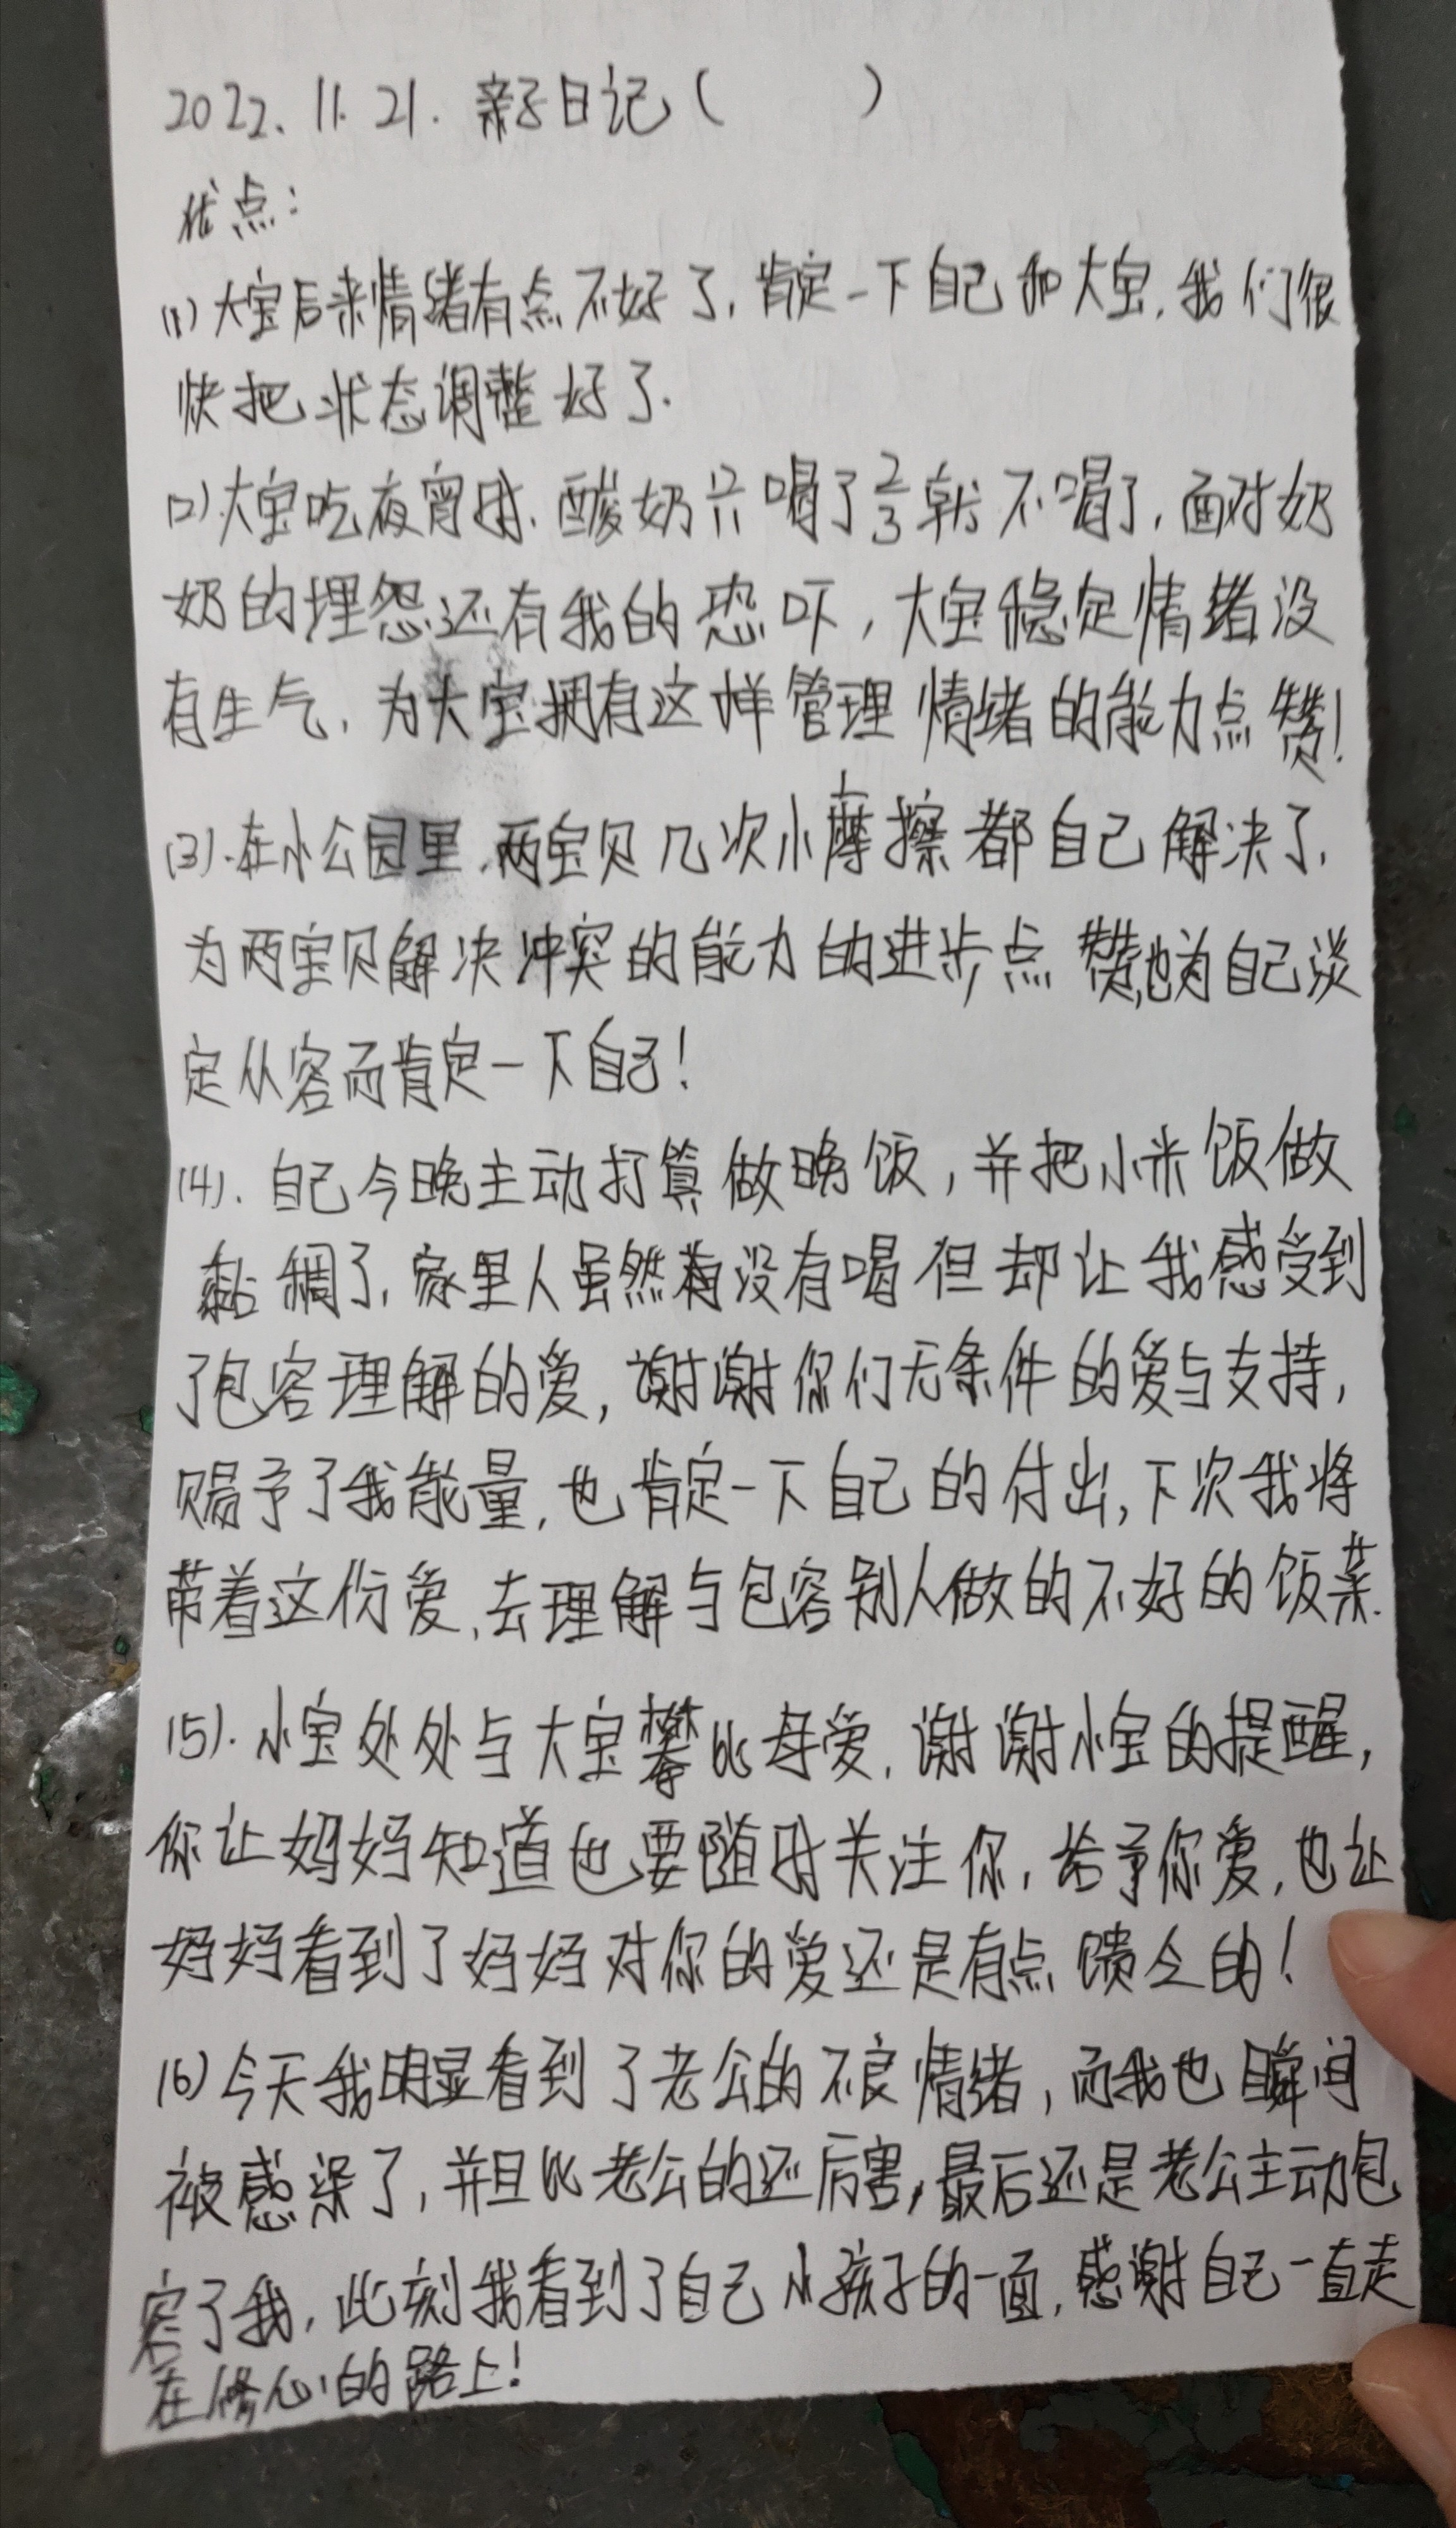 2022.11.21.亲子日记(    )
优点:
(1)大宝后来情绪有点不好了,肯定一下自己和大宝,我们很
快把状态调整好了.
(2)大宝吃夜宵时,酸奶只喝了2/3就不喝了,面对奶
奶的埋怨还有我的恐吓,大宝稳定情绪没
有生气,为大宝拥有这样管理情绪的能力点赞!
(3).在小公园里,两宝贝几次小摩擦都自己解决了,
为两宝贝解决冲突的能力的进步点赞,也为自己淡
定从容而肯定一下自己!
(4).自己今晚主动打算做晚饭,并把小米饭做
黏稠了,家里人虽然没有喝但却让我感受到
了包容理解的爱,谢谢你们无条件的爱与支持,
赐予了我能量,也肯定一下自己的付出,下次我将
带着这份爱,去理解与包容别人做的不好的饭菜.
(5).小宝处处与大宝攀比母爱,谢谢小宝的提醒,
你让妈妈知道也要随时关注你,给予你爱,也让
妈妈看到了妈妈对你的爱还是有点匮乏的!
(6)今天我明显看到了老公的不良情绪,而我也瞬间
被感染了,并且比老公的还厉害,最后还是老公主动包
容了我,此刻我看到了自己小孩子的一面,感谢自己一直走
在修心的路上!